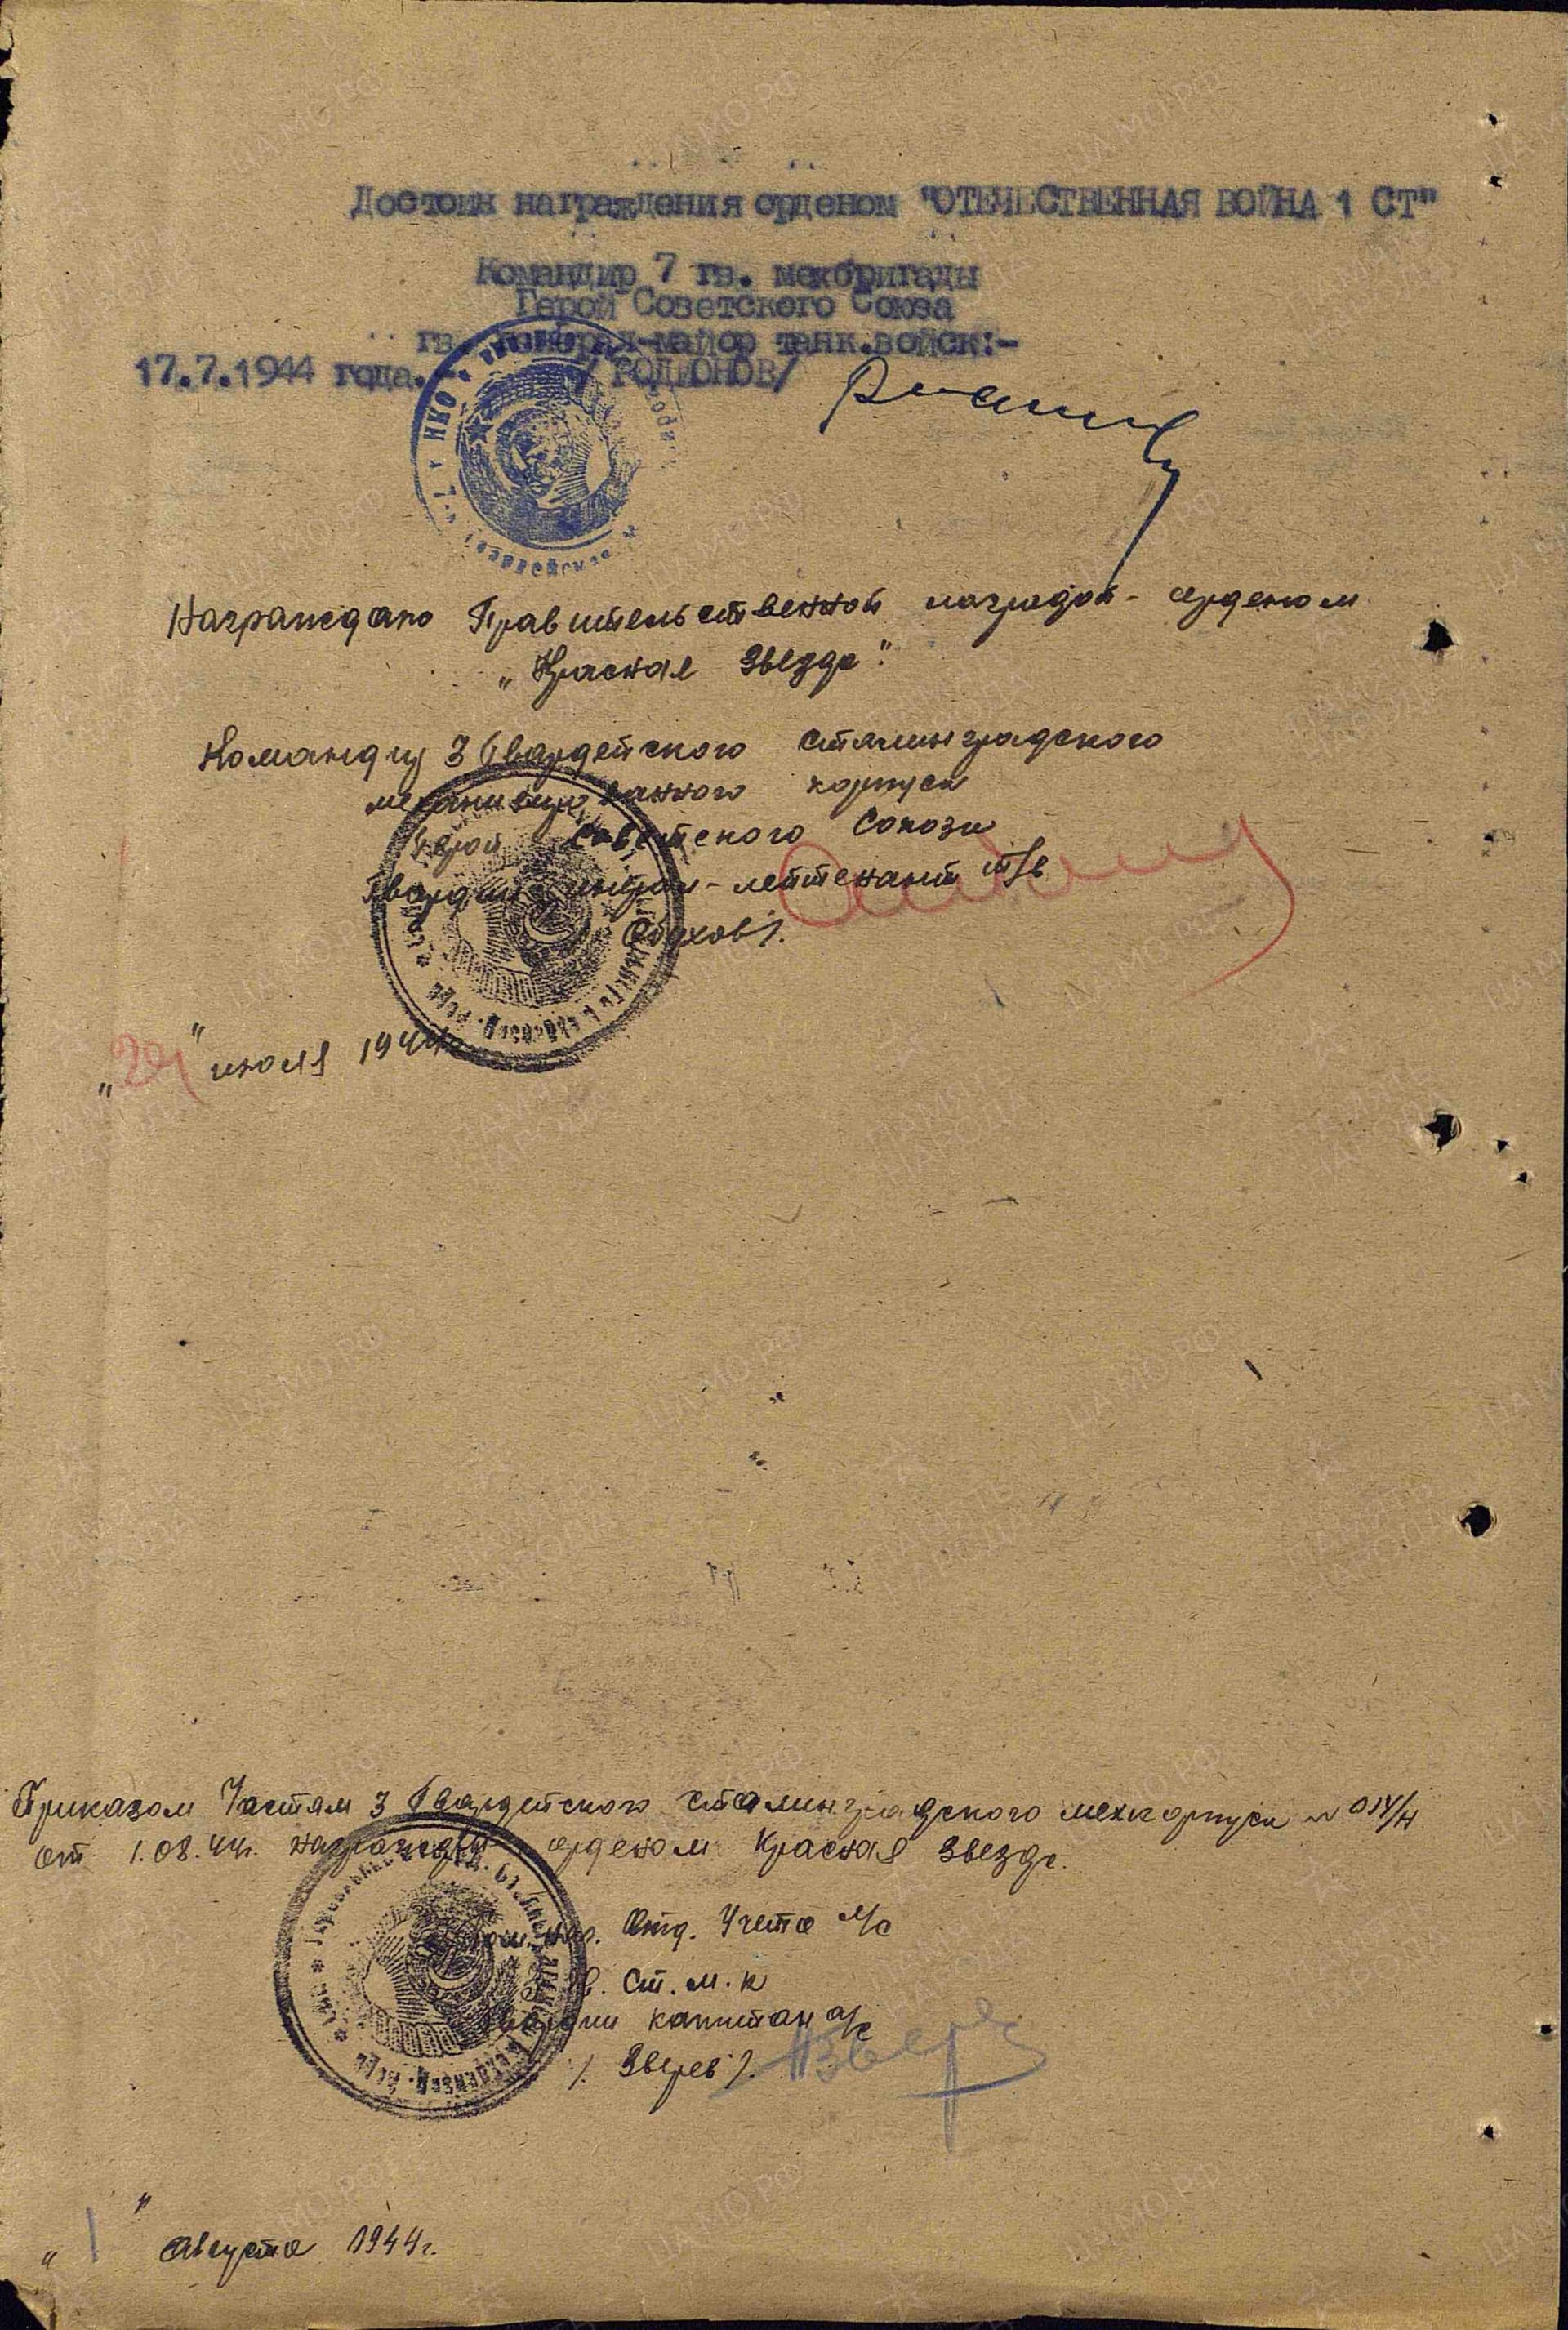 Достоин награждения орденом "ОТЕЧЕСТВЕННАЯ ВОЙНА 1 СТ"
Командир 7 гв. мехбригады
Герой Советского Союза
гв. генерал-майор танк.войск:-
17.7.1944 года. /РОДИОНОВ/
НКО
7-я Гвардейская
Награждаю Правительственной наградой - орденом
„Красная Звезда".
Командир 3 Гвардейского Сталинградского
механизированного корпуса
Герой Советского Союза
Гвардии генерал-лейтенант т/в
Обухов/.
" " июля 1944
Приказом Частям 3 Гвардейского Сталинградского мехкорпуса № 014/н
от 1.08.44г. награжден орденом Красная Звезда.
Пом. нач. Отд. Учета л/с
3 Гв. Ст. м. к
Гвардии капитан а/с
/. Зверев /.
„ 1 " Августа 1944г.
ЦАМО.РФ
ПАМЯТЬ НАРОДА